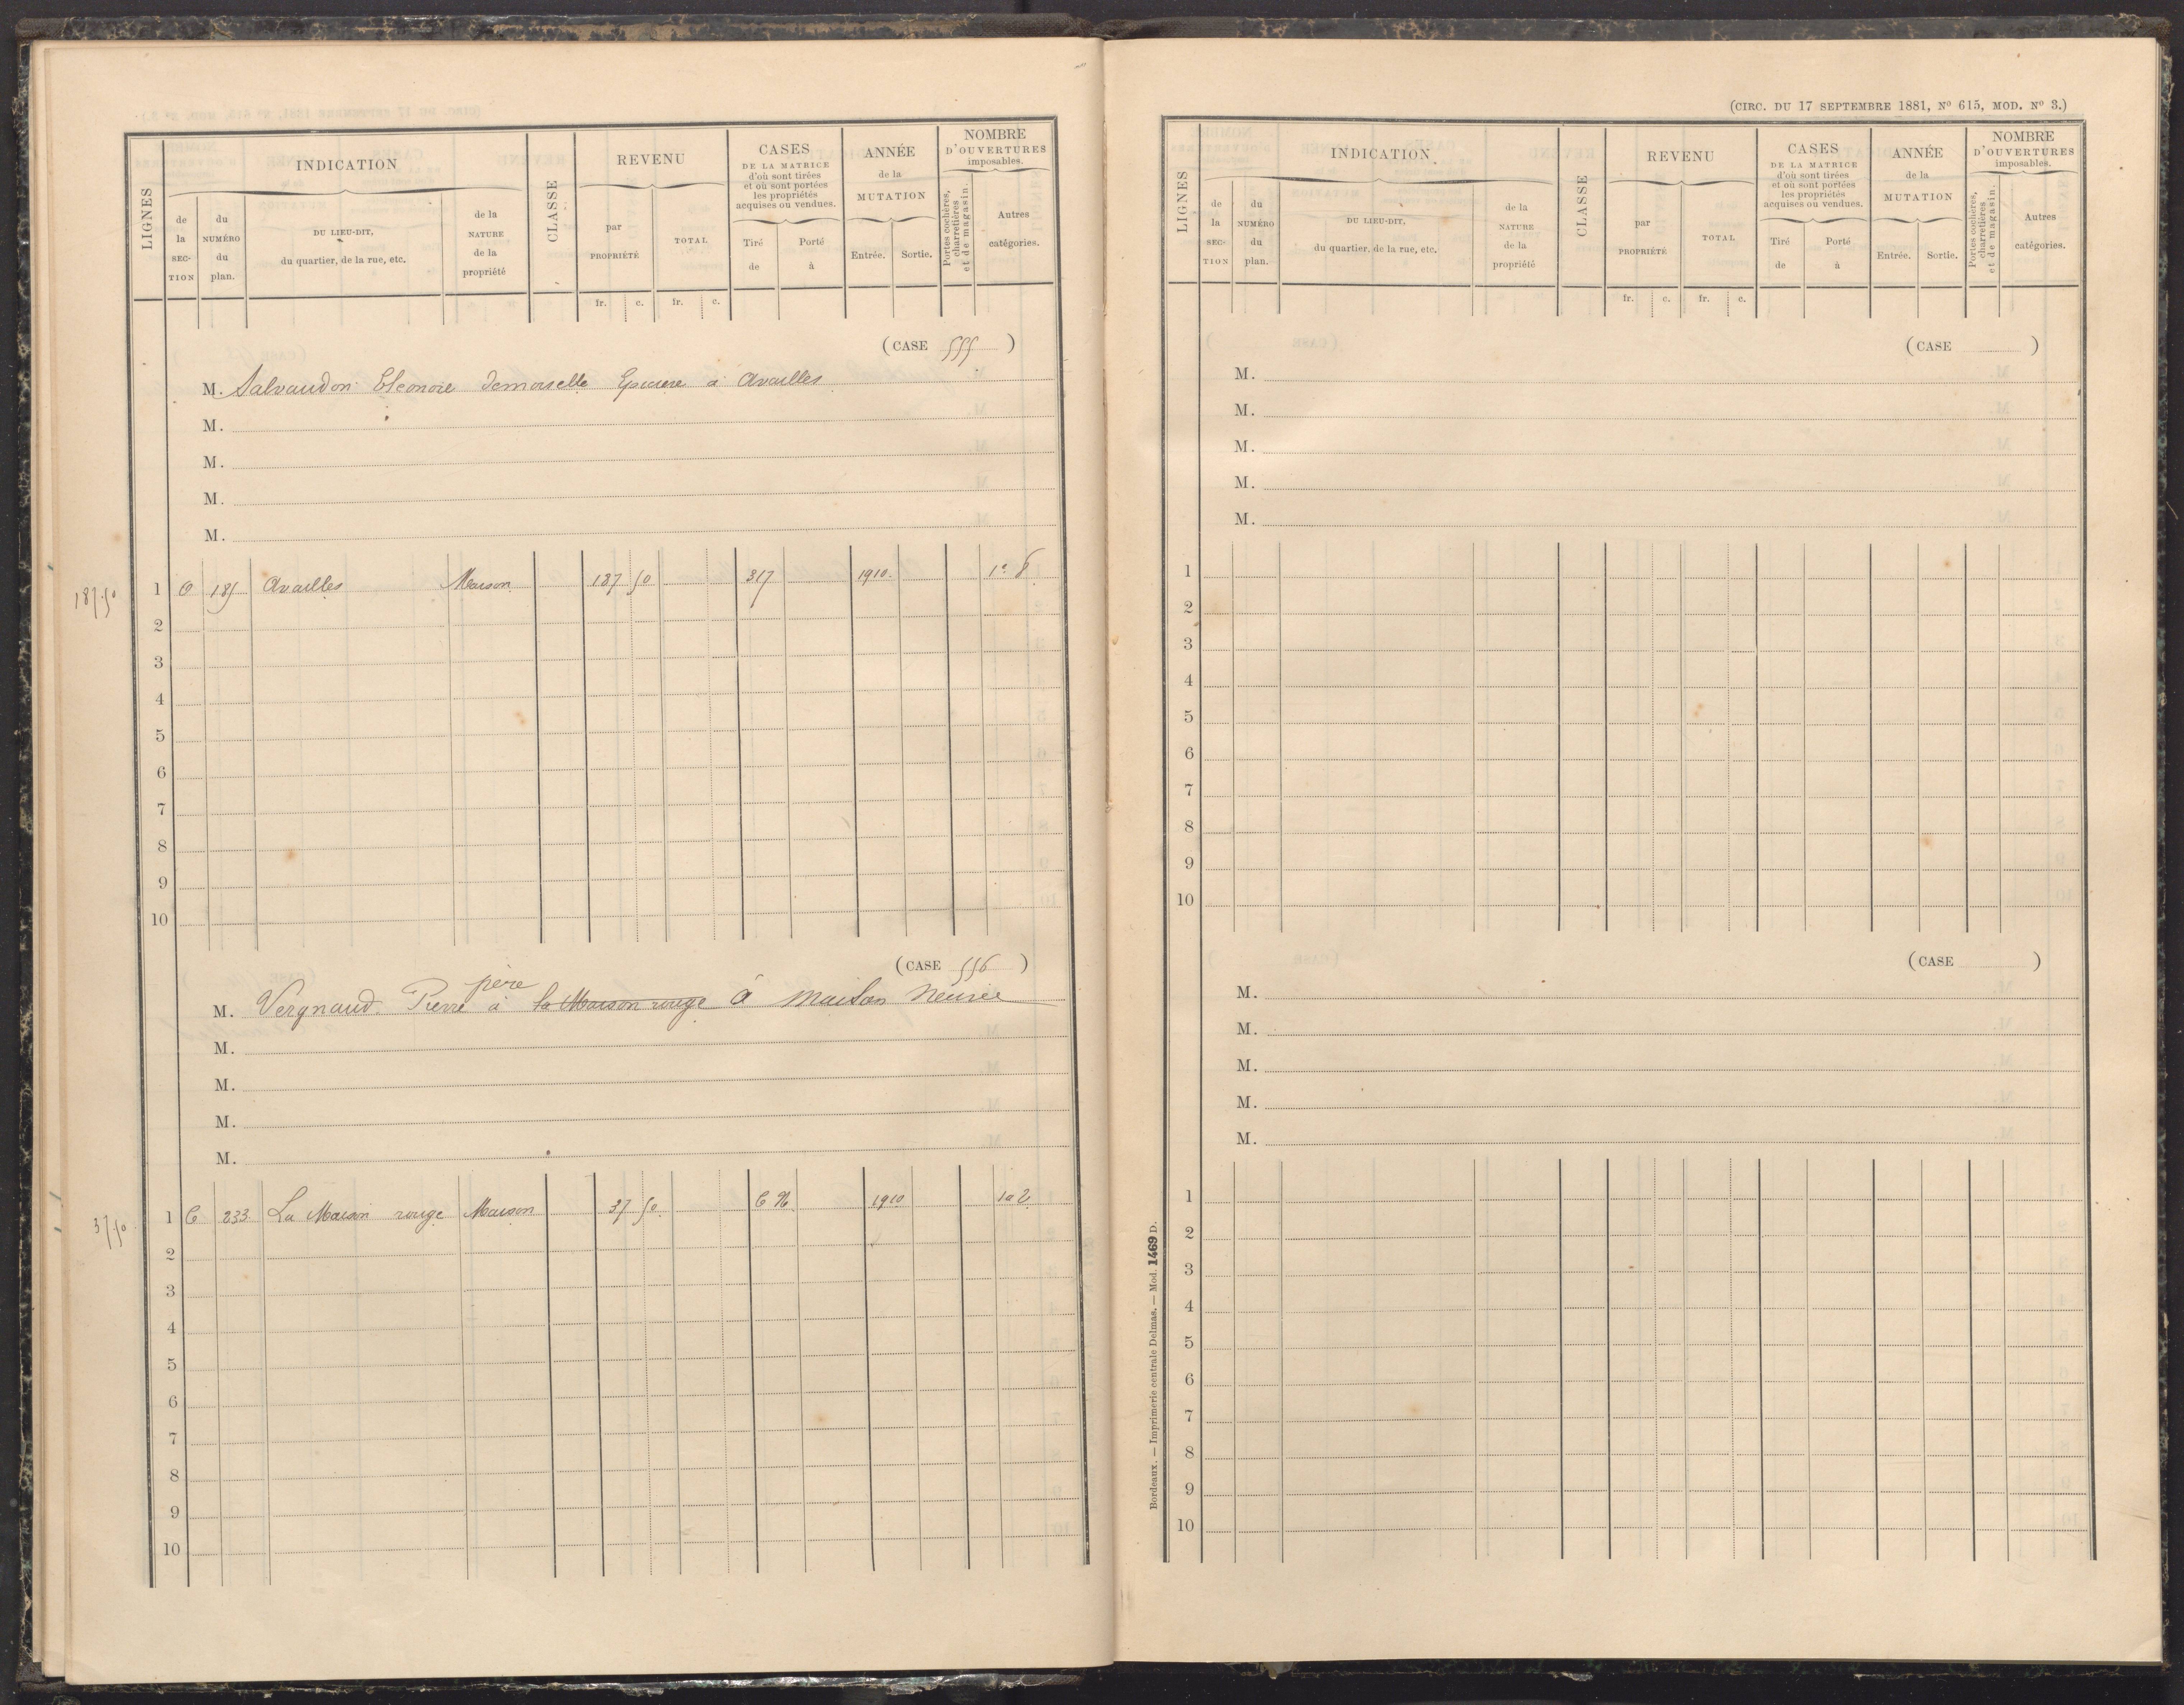 LIGNES
INDICATION
de la SECTION
du NUMÉRO du plan.
DU LIEU-DIT, du quartier, de la rue, etc.
de la NATURE de la propriété
CLASSE
REVENU
par PROPRIÉTÉ
TOTAL
CASES DE LA MATRICE d'où sont tirées et où sont portées les propriétés acquises ou vendues.
Tiré de
Porté à
ANNÉE de la MUTATION
Entrée. Sortie.
NOMBRE D'OUVERTURES imposables.
Portes cochères, charretières et de magasin.
Autres catégories.
fr. c. fr. c.
(CASE 555 )
M. Salvaudon Eléonore demoiselle Epicière à Availles
M.
M.
M.
M.
187.50 1 O 185 Availles Maison 187 50 317 1910. 1e 8
2
3
4
5
6
7
8
9
10
(CASE 556 )
père
M. Vergnaud Pierre à la Maison rouge à maison neuve
M.
M.
M.
M.
37.50 1 C 233 La Maison rouge Maison 37 50 C N 1910 1a 2
2
3
4
5
6
7
8
9
10
(CIRC. DU 17 SEPTEMBRE 1881, Nº 615, MOD. Nº 3.)
LIGNES
INDICATION
de la SECTION
du NUMÉRO du plan.
DU LIEU-DIT, du quartier, de la rue, etc.
de la NATURE de la propriété
CLASSE
REVENU
par PROPRIÉTÉ
TOTAL
CASES DE LA MATRICE d'où sont tirées et où sont portées les propriétés acquises ou vendues.
Tiré de
Porté à
ANNÉE de la MUTATION
Entrée. Sortie.
NOMBRE D'OUVERTURES imposables.
Portes cochères, charretières et de magasin.
Autres catégories.
fr. c. fr. c.
(CASE )
M.
M.
M.
M.
M.
1
2
3
4
5
6
7
8
9
10
(CASE )
M.
M.
M.
M.
M.
1
2
3
4
5
6
7
8
9
10
Bordeaux. — Imprimerie centrale Delmas. — Mod. 1469 D.